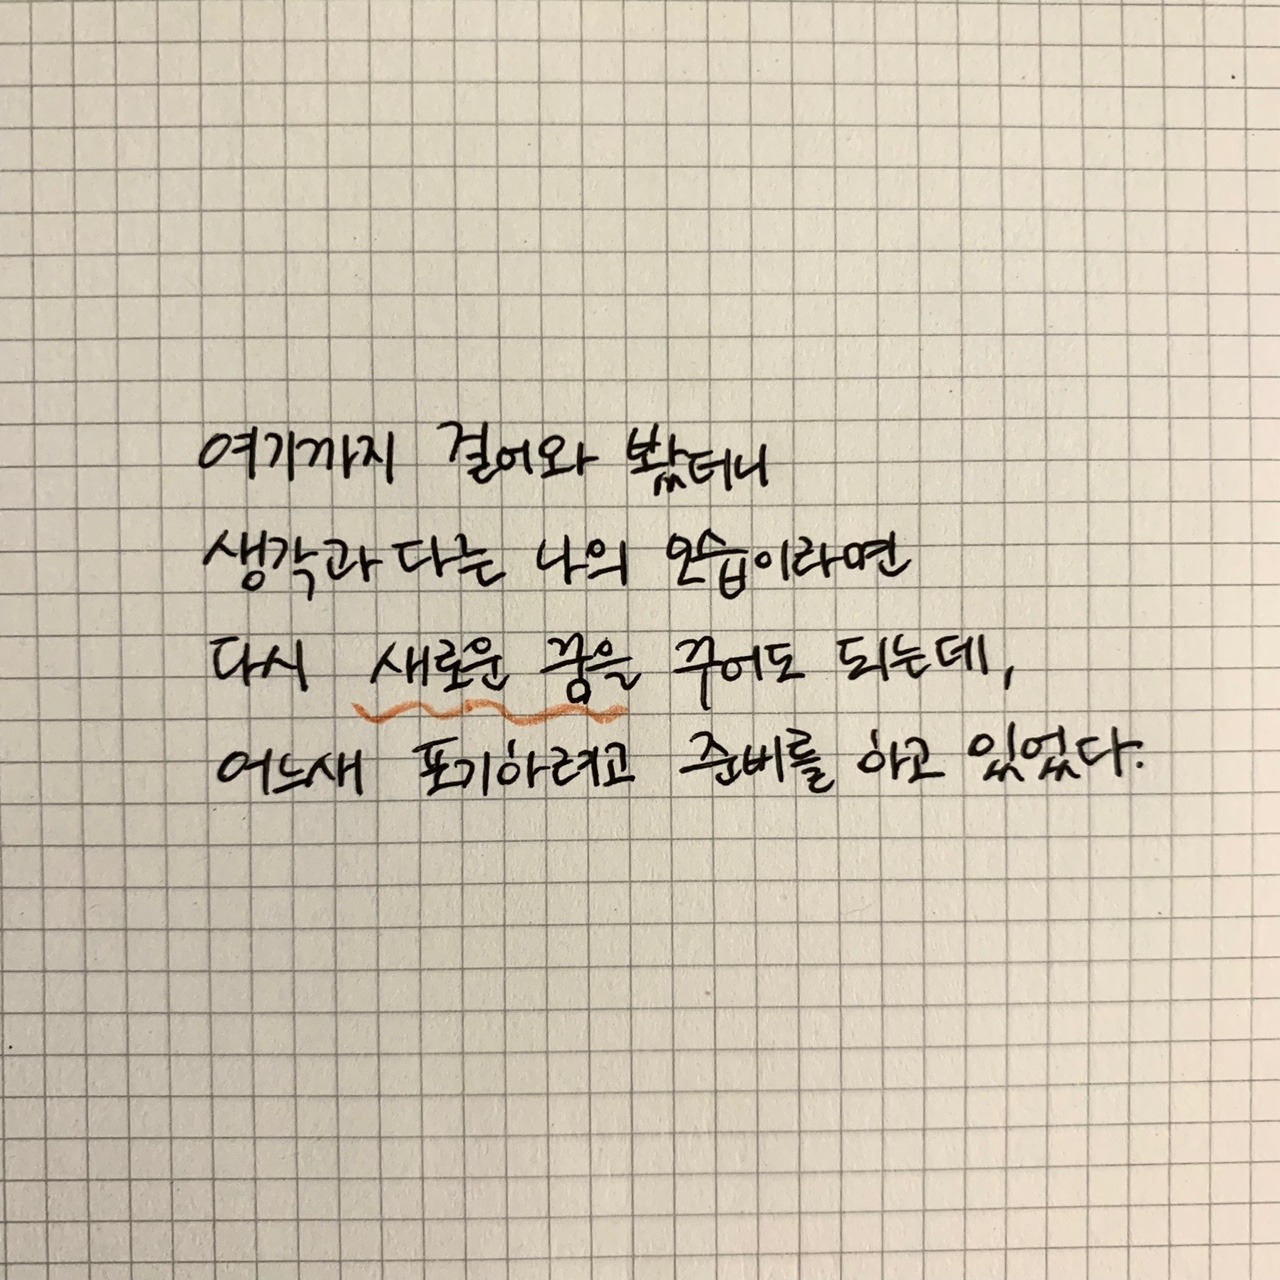 여기까지 걸어와 봤더니
생각과 다른 나의 모습이라면
다시 새로운 꿈을 꾸어도 되는데,
어느새 포기하려고 준비를 하고 있었다.